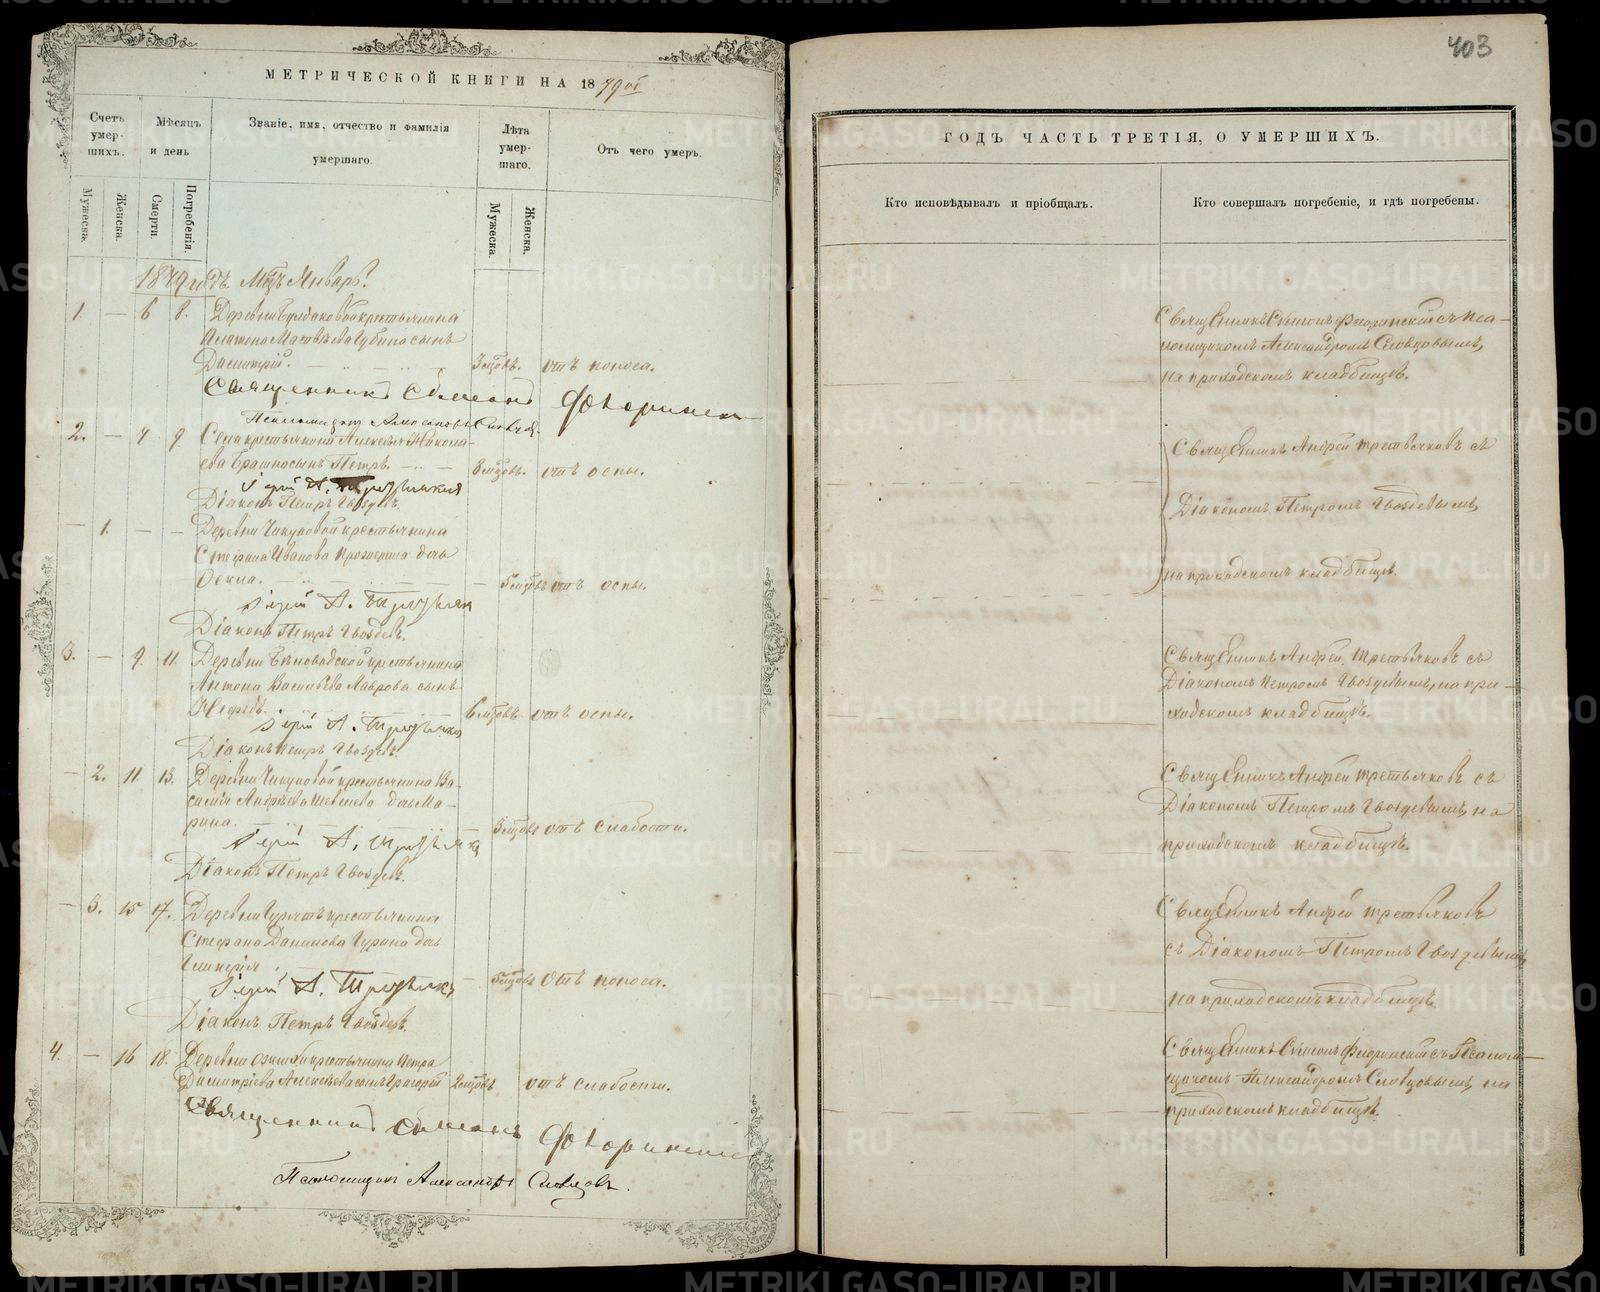 МЕТРИЧЕСКОЙ КНИГИ НА 1879 ой
Счетъ умер-шихъ.
Мѣсяцъ и день
Званіе, имя, отчество и фамилія умершаго.
Лѣта умер-шаго.
Отъ чего умеръ.
Мужеска.
Женска.
Смерти.
Погребенія.
Мужеска.
Женска.
1879 годъ. Мцъ Январь.
1. — 6 8. Деревни крестьянина
Платона Матвѣева Губина сынъ
Димитрій. 3 мцовъ. отъ поноса.
Священникъ Симеонъ Флоринскій
Псаломщикъ Александръ Словцовъ.
2. — 7 9 Села крестьянина Алексѣя Никола-
ева сынъ Петръ. 8 мцовъ. отъ оспы.
Іерей А. Третьяковъ
Діаконъ Петръ Гвоздевъ.
— 1. — — Деревни Чикуновой крестьянина
Стефана Иванова дочь
Ѳекла. 5 мцовъ отъ оспы.
Іерей А. Третьяковъ
Діаконъ Петръ Гвоздевъ.
3. — 9. 11. Деревни крестьянина
Антона Васильева Лаврова сынъ
6 мцовъ отъ оспы.
Іерей А. Третьяковъ
Діаконъ Петръ Гвоздевъ.
— 2. 11. 13. Деревни Чикуновой крестьянина Ва-
силія Андрѣева дочь Ма-
рина. 3 мцовъ отъ слабости.
Іерей А. Третьяковъ
Діаконъ Петръ Гвоздевъ.
— 3. 15 17. Деревни крестьянина
Стефана Данилова Гурина дочь
Гликерія. 5 мцовъ отъ поноса.
Іерей А. Третьяковъ
Діаконъ Петръ Гвоздевъ.
4. — 16 18. Деревни крестьянина Петра
Димитріева Алексѣева сынъ Григорій 2 мцовъ отъ слабости.
Священникъ Симеонъ Флоринскій
Псаломщикъ Александръ Словцовъ.
403
ГОДЪ ЧАСТЬ ТРЕТІЯ, О УМЕРШИХЪ.
Кто исповѣдывалъ и пріобщалъ.
Кто совершалъ погребеніе, и гдѣ погребены.
Священникъ Симеонъ Флоринскій съ Пса-
ломщикомъ Александромъ Словцовымъ,
на приходскомъ кладбищѣ.
Священникъ Андрей Третьяковъ съ
Діакономъ Петромъ Гвоздевымъ,
на приходскомъ кладбищѣ.
Священникъ Андрей Третьяковъ съ
Діакономъ Петромъ Гвоздевымъ, на при-
ходскомъ кладбищѣ.
Священникъ Андрей Третьяковъ съ
Діакономъ Петромъ Гвоздевымъ, на
приходскомъ кладбищѣ.
Священникъ Андрей Третьяковъ
съ Діакономъ Петромъ Гвоздевымъ
на приходскомъ кладбищѣ.
Священникъ Симеонъ Флоринскій съ Псалом-
щикомъ Александромъ Словцовымъ, на
приходскомъ кладбищѣ.
METRIKI.GASO-URAL.RU